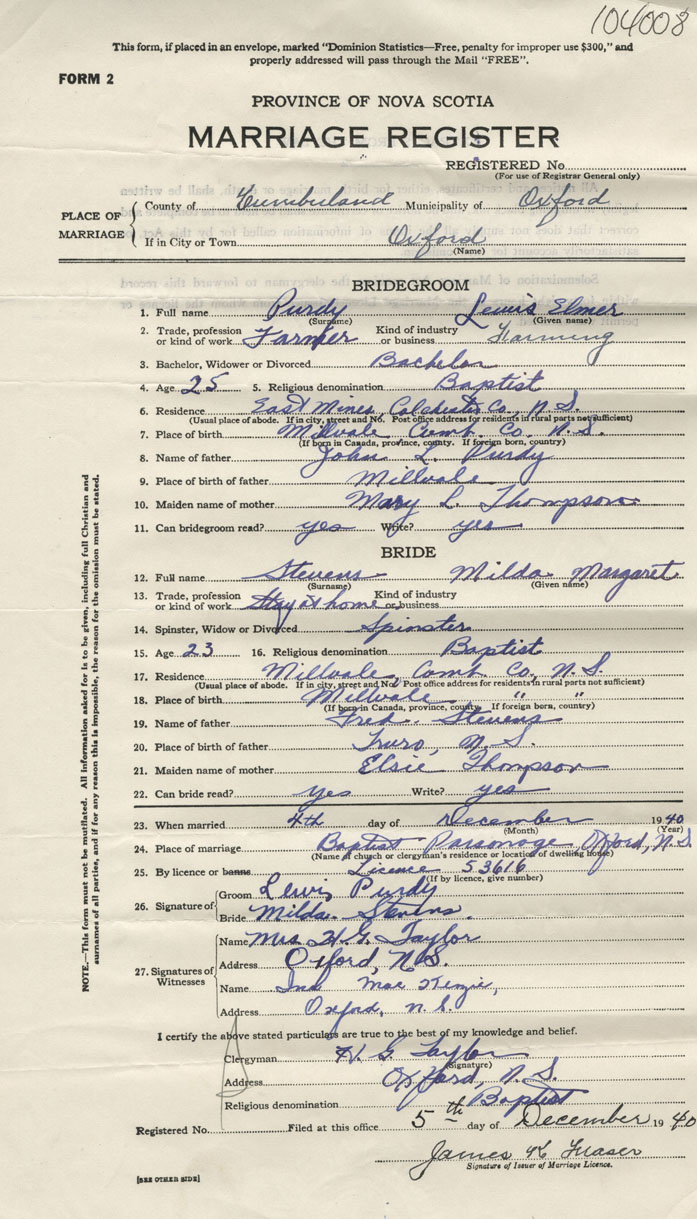 104008
This form, if placed in an envelope, marked "Dominion Statistics—Free, penalty for improper use $300," and
properly addressed will pass through the Mail "FREE".
FORM 2
PROVINCE OF NOVA SCOTIA
MARRIAGE REGISTER
REGISTERED No.
(For use of Registrar General only)
PLACE OF MARRIAGE
County of Cumberland Municipality of Oxford
If in City or Town Oxford
(Name)
BRIDEGROOM
1. Full name Purdy Lewis Elmer
(Surname) (Given name)
2. Trade, profession or kind of work Farmer Kind of industry or business Farming
3. Bachelor, Widower or Divorced Bachelor
4. Age 25 5. Religious denomination Baptist
6. Residence East Mines, Colchester Co., N.S.
(Usual place of abode. If in city, street and No. Post office address for residents in rural parts not sufficient)
7. Place of birth Millvale Cumb. Co. N.S.
(If born in Canada, province, county. If foreign born, country)
8. Name of father John L. Purdy
9. Place of birth of father Millvale
10. Maiden name of mother Mary L. Thompson
11. Can bridegroom read? yes Write? yes
BRIDE
12. Full name Stevens Milda Margaret
(Surname) (Given name)
13. Trade, profession or kind of work Stay at home Kind of industry or business
14. Spinster, Widow or Divorced Spinster
15. Age 23 16. Religious denomination Baptist
17. Residence Millvale, Cumb. Co., N.S.
(Usual place of abode. If in city, street and No. Post office address for residents in rural parts not sufficient)
18. Place of birth Millvale " "
(If born in Canada, province, county. If foreign born, country)
19. Name of father Fred. Stevens
20. Place of birth of father Truro, N.S.
21. Maiden name of mother Elsie Thompson
22. Can bride read? yes Write? yes
23. When married 4th day of December 1940
(Month) (Year)
24. Place of marriage Baptist Parsonage Oxford, N.S.
(Name of church or clergyman's residence or location of dwelling house)
25. By licence or banns Licence 53616
(If by licence, give number)
26. Signature of
Groom Lewis Purdy
Bride Milda Stevens.
27. Signatures of Witnesses
Name Mrs H.G. Taylor
Address Oxford, N.S.
Name Ina MacKenzie,
Address Oxford, N.S.
I certify the above stated particulars are true to the best of my knowledge and belief.
Clergyman H. G. Taylor
(Signature)
Address Oxford, N.S.
Religious denomination Baptist
Registered No. Filed at this office 5th day of December 1940
James Fraser
Signature of Issuer of Marriage Licence.
[SEE OTHER SIDE]
NOTE.—This form must not be mutilated. All information asked for is to be given, including full Christian and
surnames of all parties, and if for any reason this is impossible, the reason for the omission must be stated.